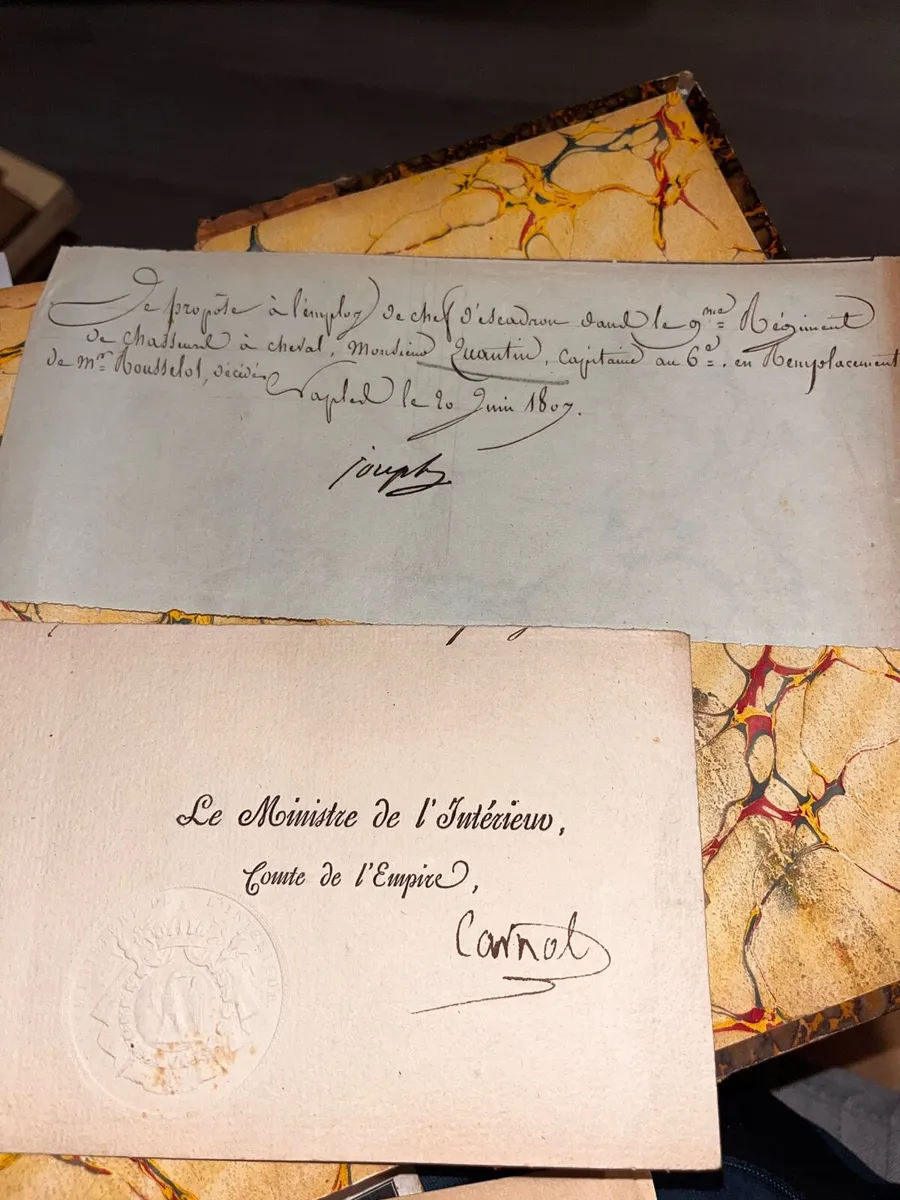 Je propose à l'employ de chef d'escadron dans le 9.me Régiment
de chasseurs à cheval, Monsieur Quantin, Capitaine au 6.e en Remplacement
de Mr. Rousselot, décédé.
Naples le 20 Juin 1807.
joseph
Le Ministre de l'Intérieur,
Comte de l'Empire,
Carnot